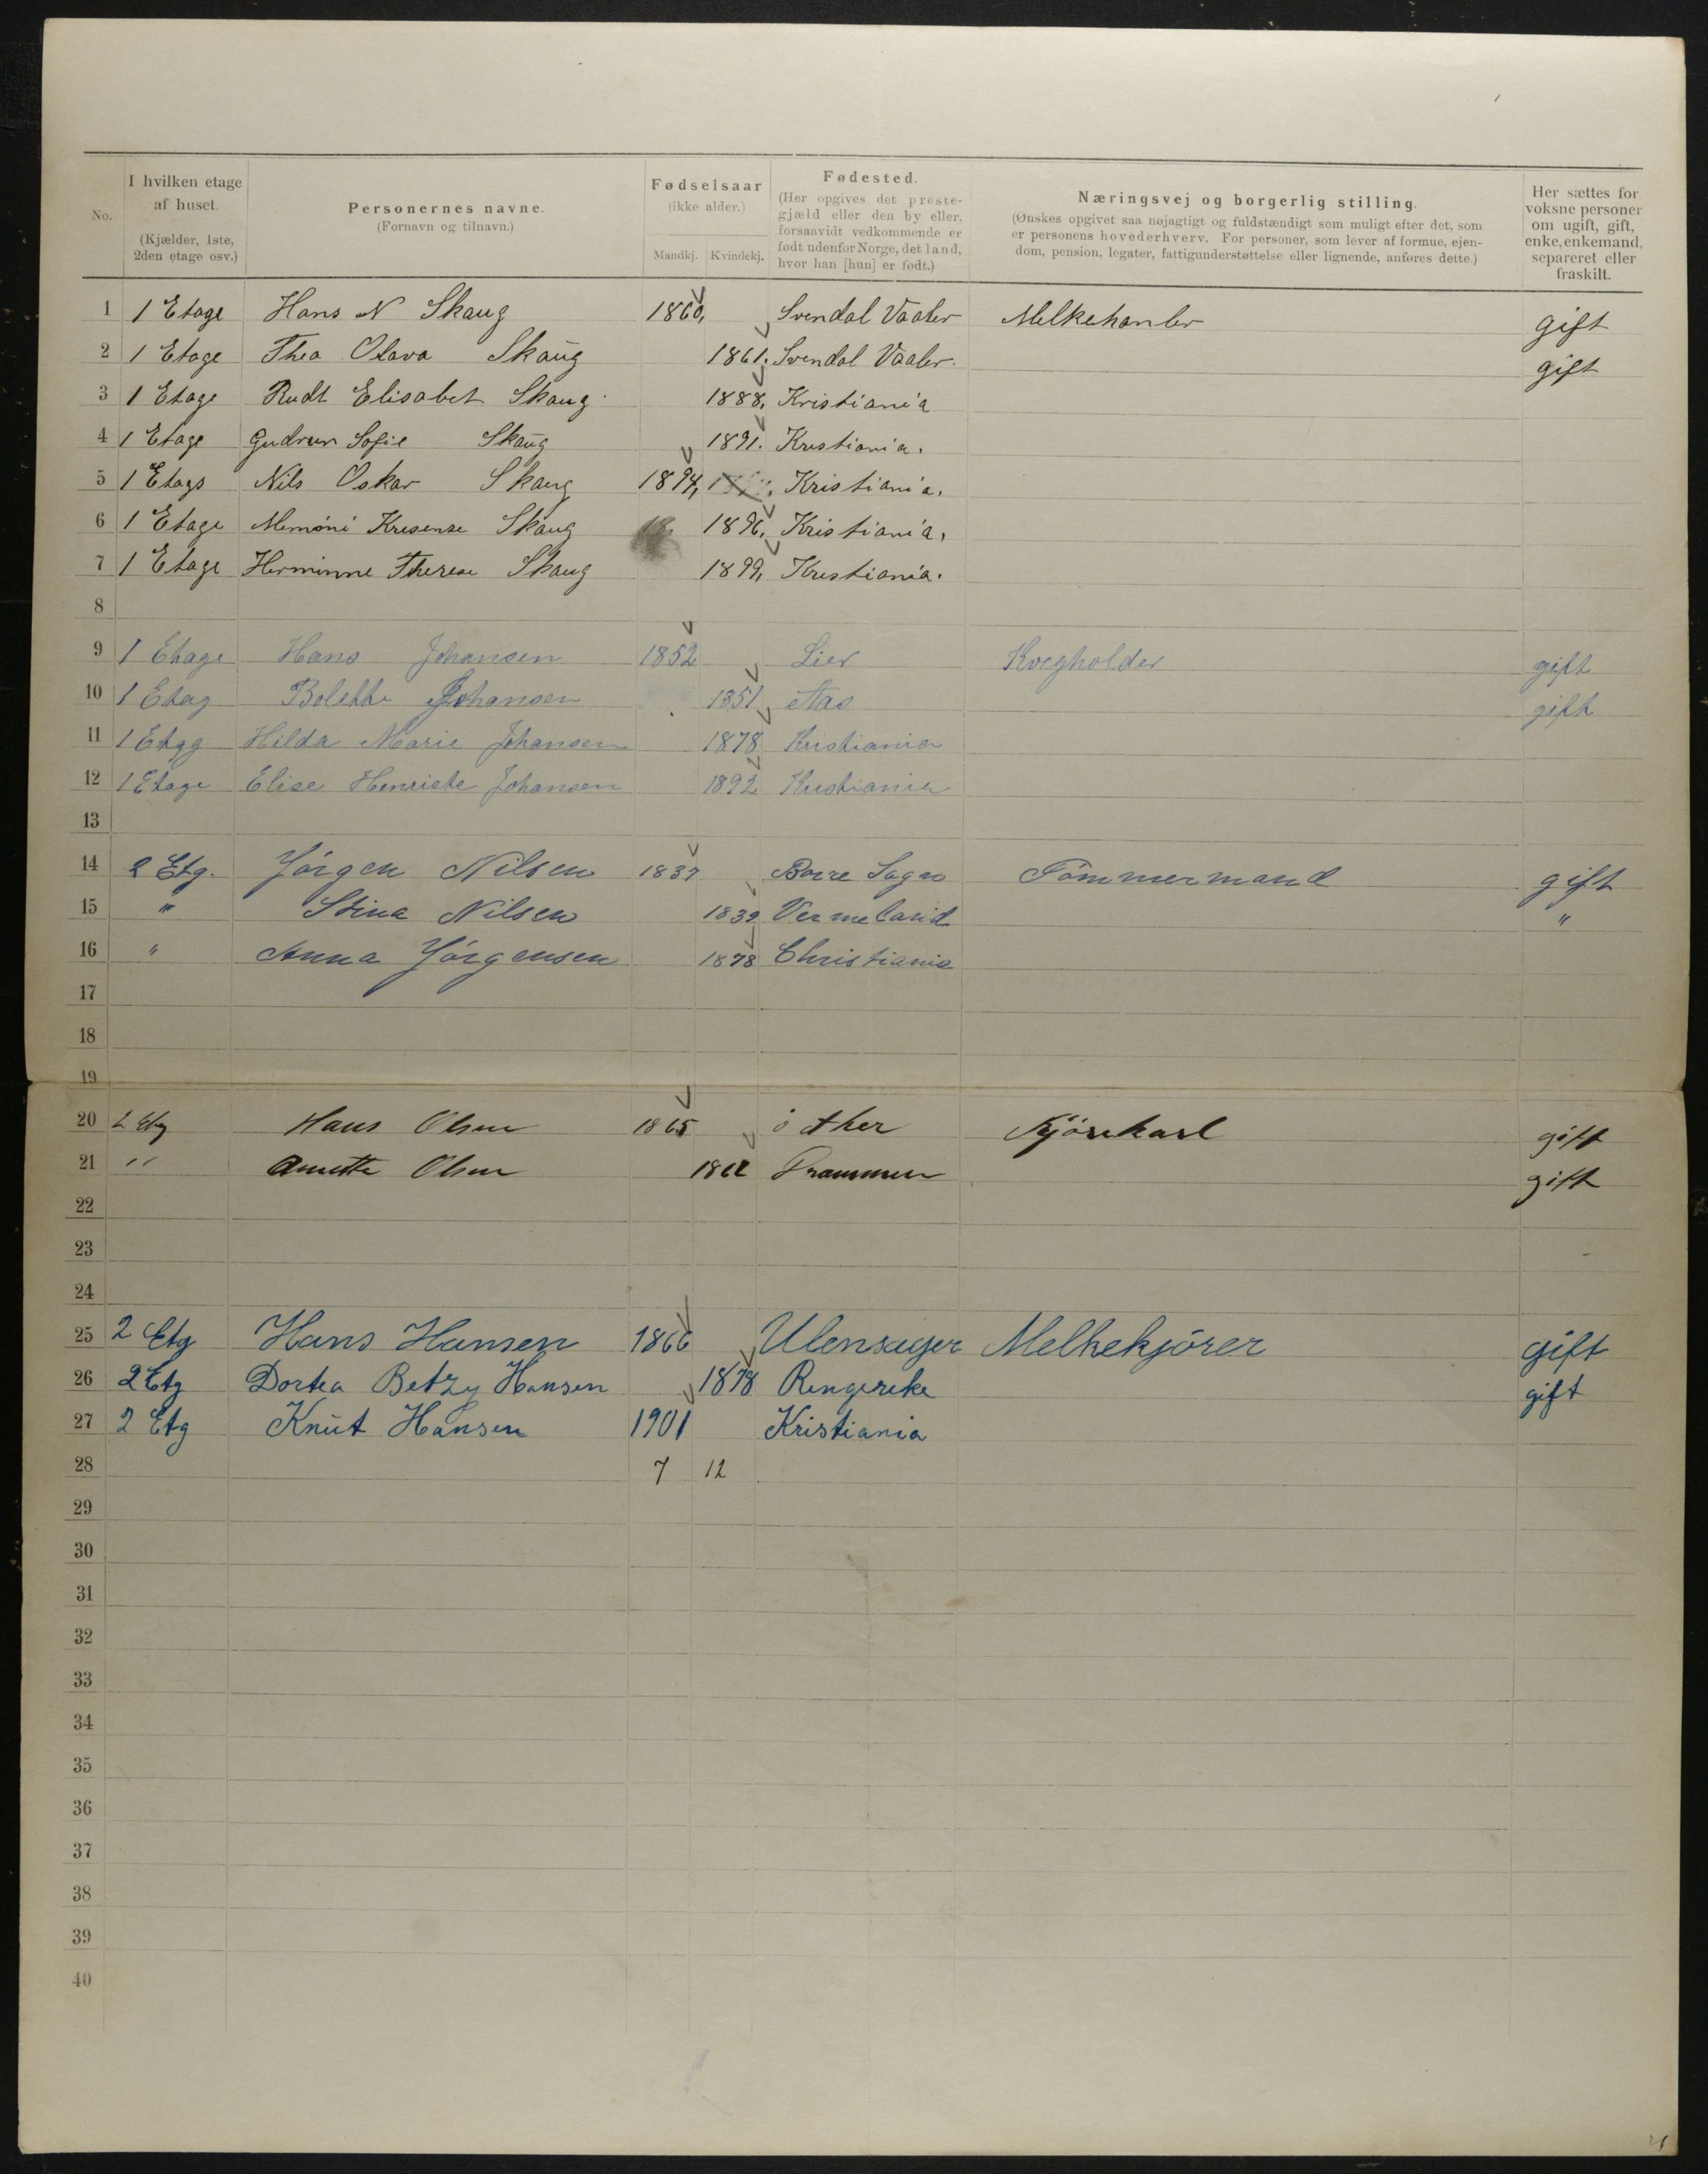 No.
I hvilken etage af huset. (Kjælder, 1ste, 2den etage osv.)
Personernes navne. (Fornavn og tilnavn.)
Fødselsaar (ikke alder.) Mandkj. Kvindekj.
Fødested. (Her opgives det prestegjæld eller den by eller, forsaavidt vedkommende er født udenfor Norge, det land, hvor han [hun] er født.)
Næringsvej og borgerlig stilling. (Ønskes opgivet saa nøjagtigt og fuldstændigt som muligt efter det, som er personens hovederhverv. For personer, som lever af formue, ejendom, pension, legater, fattigunderstøttelse eller lignende, anføres dette.)
Her sættes for voksne personer om ugift, gift, enke, enkemand, separeret eller fraskilt.
1 1 Etage Hans N Skaug 1860, Svendal Vaaler Melkehanler gift
2 1 Etage Thea Olava Skaug 1861. Svendal Vaaler. gift
3 1 Etage Rudt Elisabet Skaug 1888, Kristiania
4 1 Etage Gudrun Sofie Skaug 1891. Kristiania.
5 1 Etags Nils Oskar Skaug 1894, Kristiania,
6 1 Etage Kresense Skaug 1896, Kristiania,
7 1 Etage Herminne Therese Skaug 1899, Kristiania.
8
9 1 Etage Hans Johansen 1852 Lier Kvegholder gift
10 1 Etag Bolette Johansen 1851 Aas gift
11 1 Etag Hilda Marie Johansen 1878 Kristiania
12 1 Etage Elise Henriete Johansen 1892 Kristiania
13
14 2 Etg. Jórgen Nilsen 1837 Borre Sogn Tómmermand gift
15 " Stina Nilsen 1839 Vermeland "
16 " Anna Jórgensen 1878 Christiania
17
18
19
20 2 Etg Hans Olsen 1865 Kjórekarl gift
21 " Anette Olsen 1862 Drammen gift
22
23
24
25 2 Etg Hans Hansen 1866 Ulensager Melkekjórer gift
26 2 Etg Dortea Betzy Hansen 1878 Ringerike gift
27 2 Etg Knut Hansen 1901 Kristiania
28 7 12
29
30
31
32
33
34
35
36
37
38
39
40